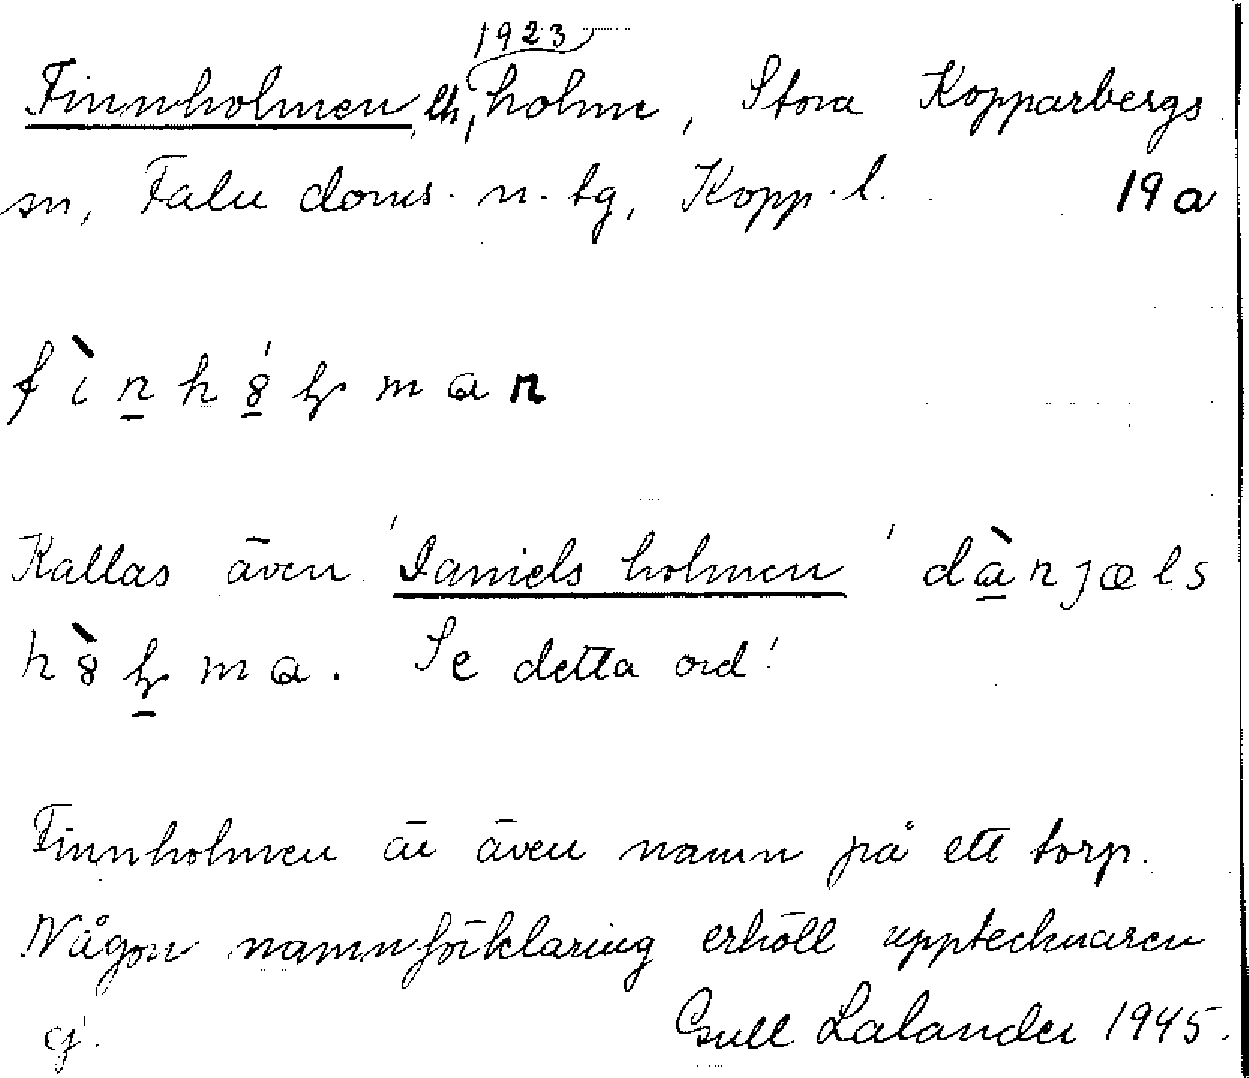 1923
Finnholmen, lh, holme, Stora Kopparbergs
sn, Falu doms. n. tg, Kopp. l. 19a
fìnhólman
Kallas även 'Danielsholmen' dànjæls
hòlma. Se detta ord!
Finnholmen är även namn på ett torp.
Någon namnförklaring erhöll upptecknaren
ej. Gull Lalander 1945.